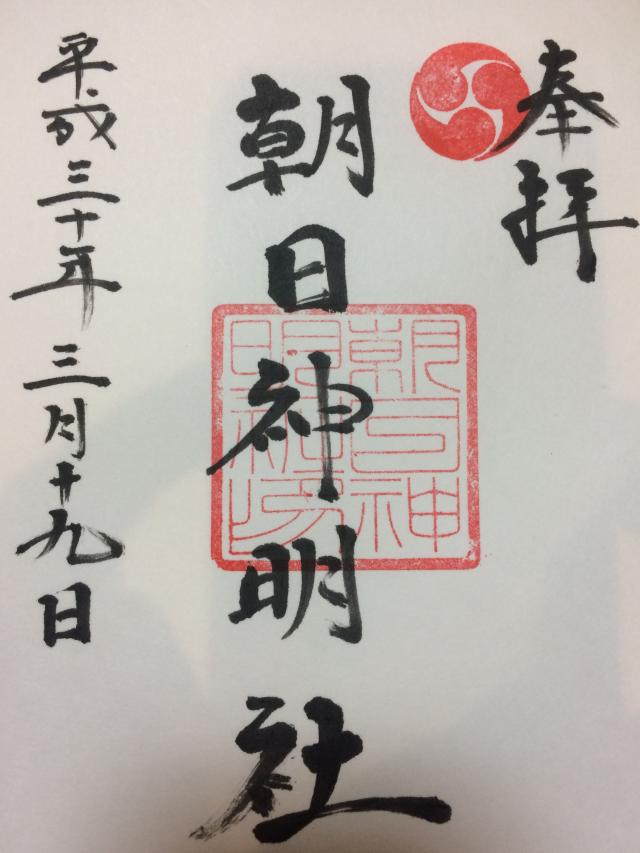 奉拝
朝日神明社
平成三十年三月十九日
朝日神
明社印